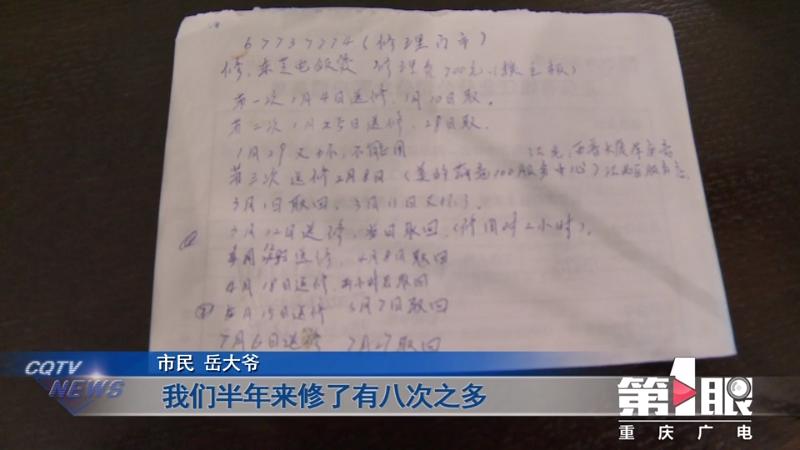 67737274（修理门市）
修.东芝电饭煲 修理费700元.（换主板）
第一次1月4日送修.1月10日取.
第二次1月25日送修.28日取.
1月29又坏,不能用
第三次 送修2月8日（
3月1日取回.3月11日又坏了.
3月12日送修,当日取回.（修用时2小时）.
送修.4月8日取回
4月18日送修
月15日送修 5月7日取回
7月6日送修 7月27取回
CQTV
NEWS
市民 岳大爷
我们半年来修了有八次之多
第1眼
重庆广电